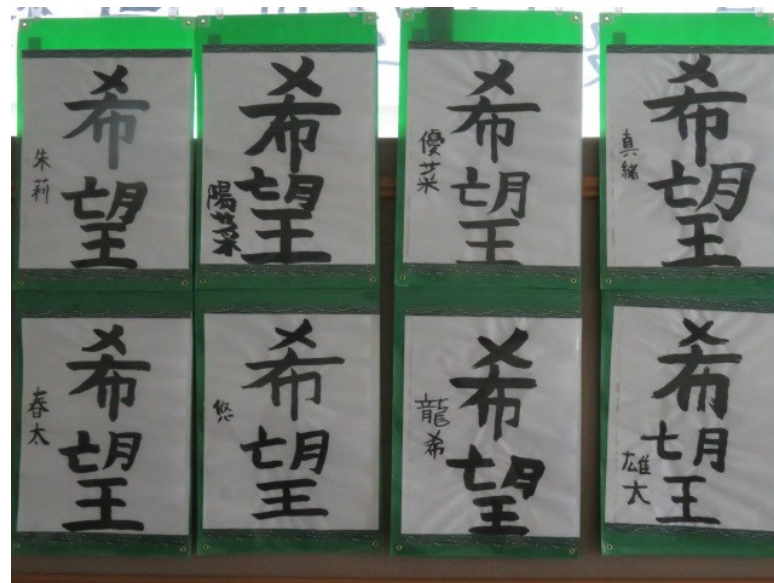 希望
朱莉
希望
陽菜
希望
優菜
希望
真緒
希望
春太
希望
悠
希望
龍希
希望
雄大